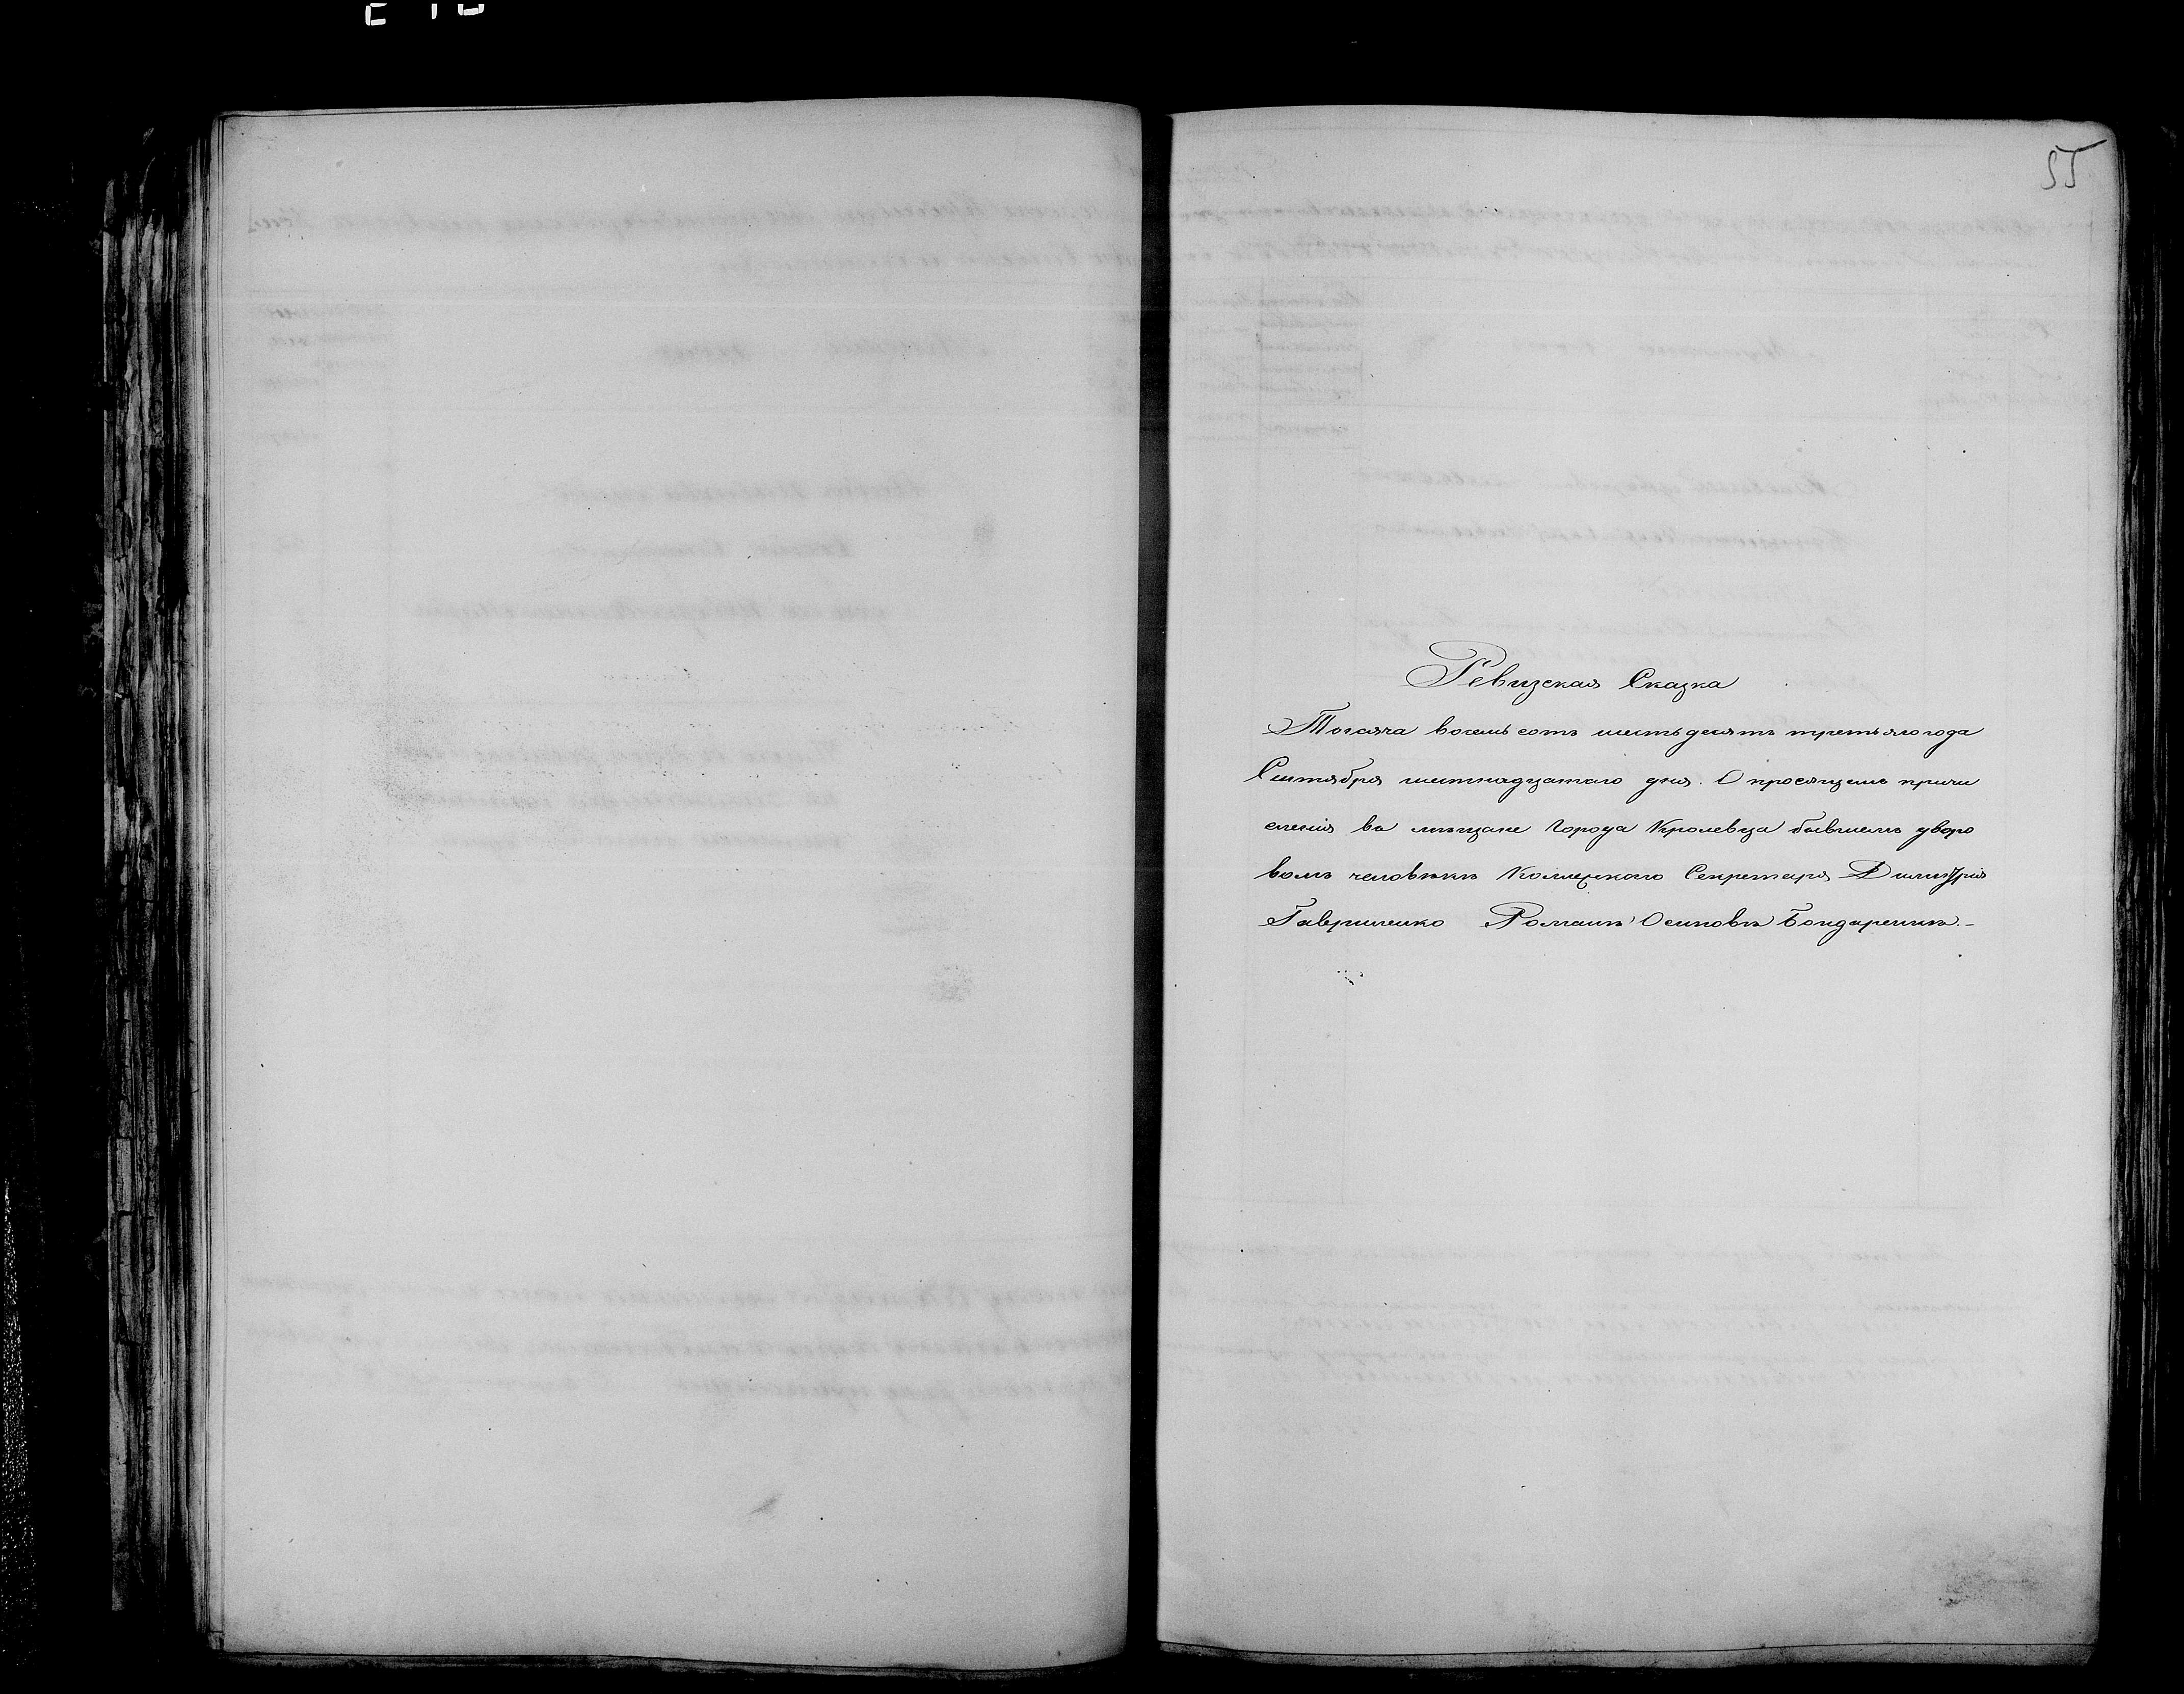 55
Ревизская Сказка
Тысяча восемьсотъ шестьдесятъ третьяго года
Сентября шестнадцатаго дня. О просящемъ причи
сленія въ мѣщане города Кролевца бывшемъ дворо
вомъ человѣкѣ Коллежскаго Секретаря Димитрія
Гавриленко Романѣ Осиповѣ Бондаренкѣ.-